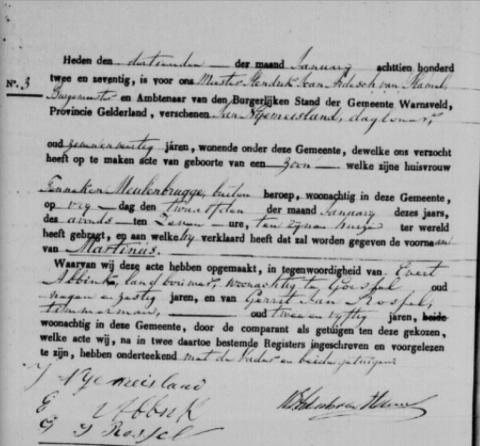 Heden den dertienden der maand January achttien honderd
N°. 3 twee en zeventig, is voor ons Meester Hendrik Jan
Burgemeester en Ambtenaar van den Burgerlijken Stand der Gemeente Warnsveld,
Provincie Gelderland, verschenen Jan Nijemeisland, daglooner,
oud jaren, wonende onder deze Gemeente, dewelke ons verzocht
heeft op te maken acte van geboorte van een zoon welke zijne huisvrouw
Tenneken Meulenbrugge, buiten beroep, woonachtig in deze Gemeente,
op vry-dag den twaalfden der maand January dezes jaars,
des avonds ten zeven ure, ten zijnen huize ter wereld
heeft gebragt, en aan welke hij verklaard heeft dat zal worden gegeven de voornaam
van Martinus.
Waarvan wij deze acte hebben opgemaakt, in tegenwoordigheid van Evert
Abbink, landbouwer, woonachtig te Gorssel oud
negen en zestig jaren, en van Gerrit Jan Rossel,
timmerman, oud twee en vyftig jaren, beide
woonachtig in deze Gemeente, door de comparant als getuigen ten deze gekozen,
welke acte wij, na in twee daartoe bestemde Registers ingeschreven en voorgelezen
te zijn, hebben onderteekend met de Vader en beide getuigen
J Nijemeisland
E Abbink
G J Rossel